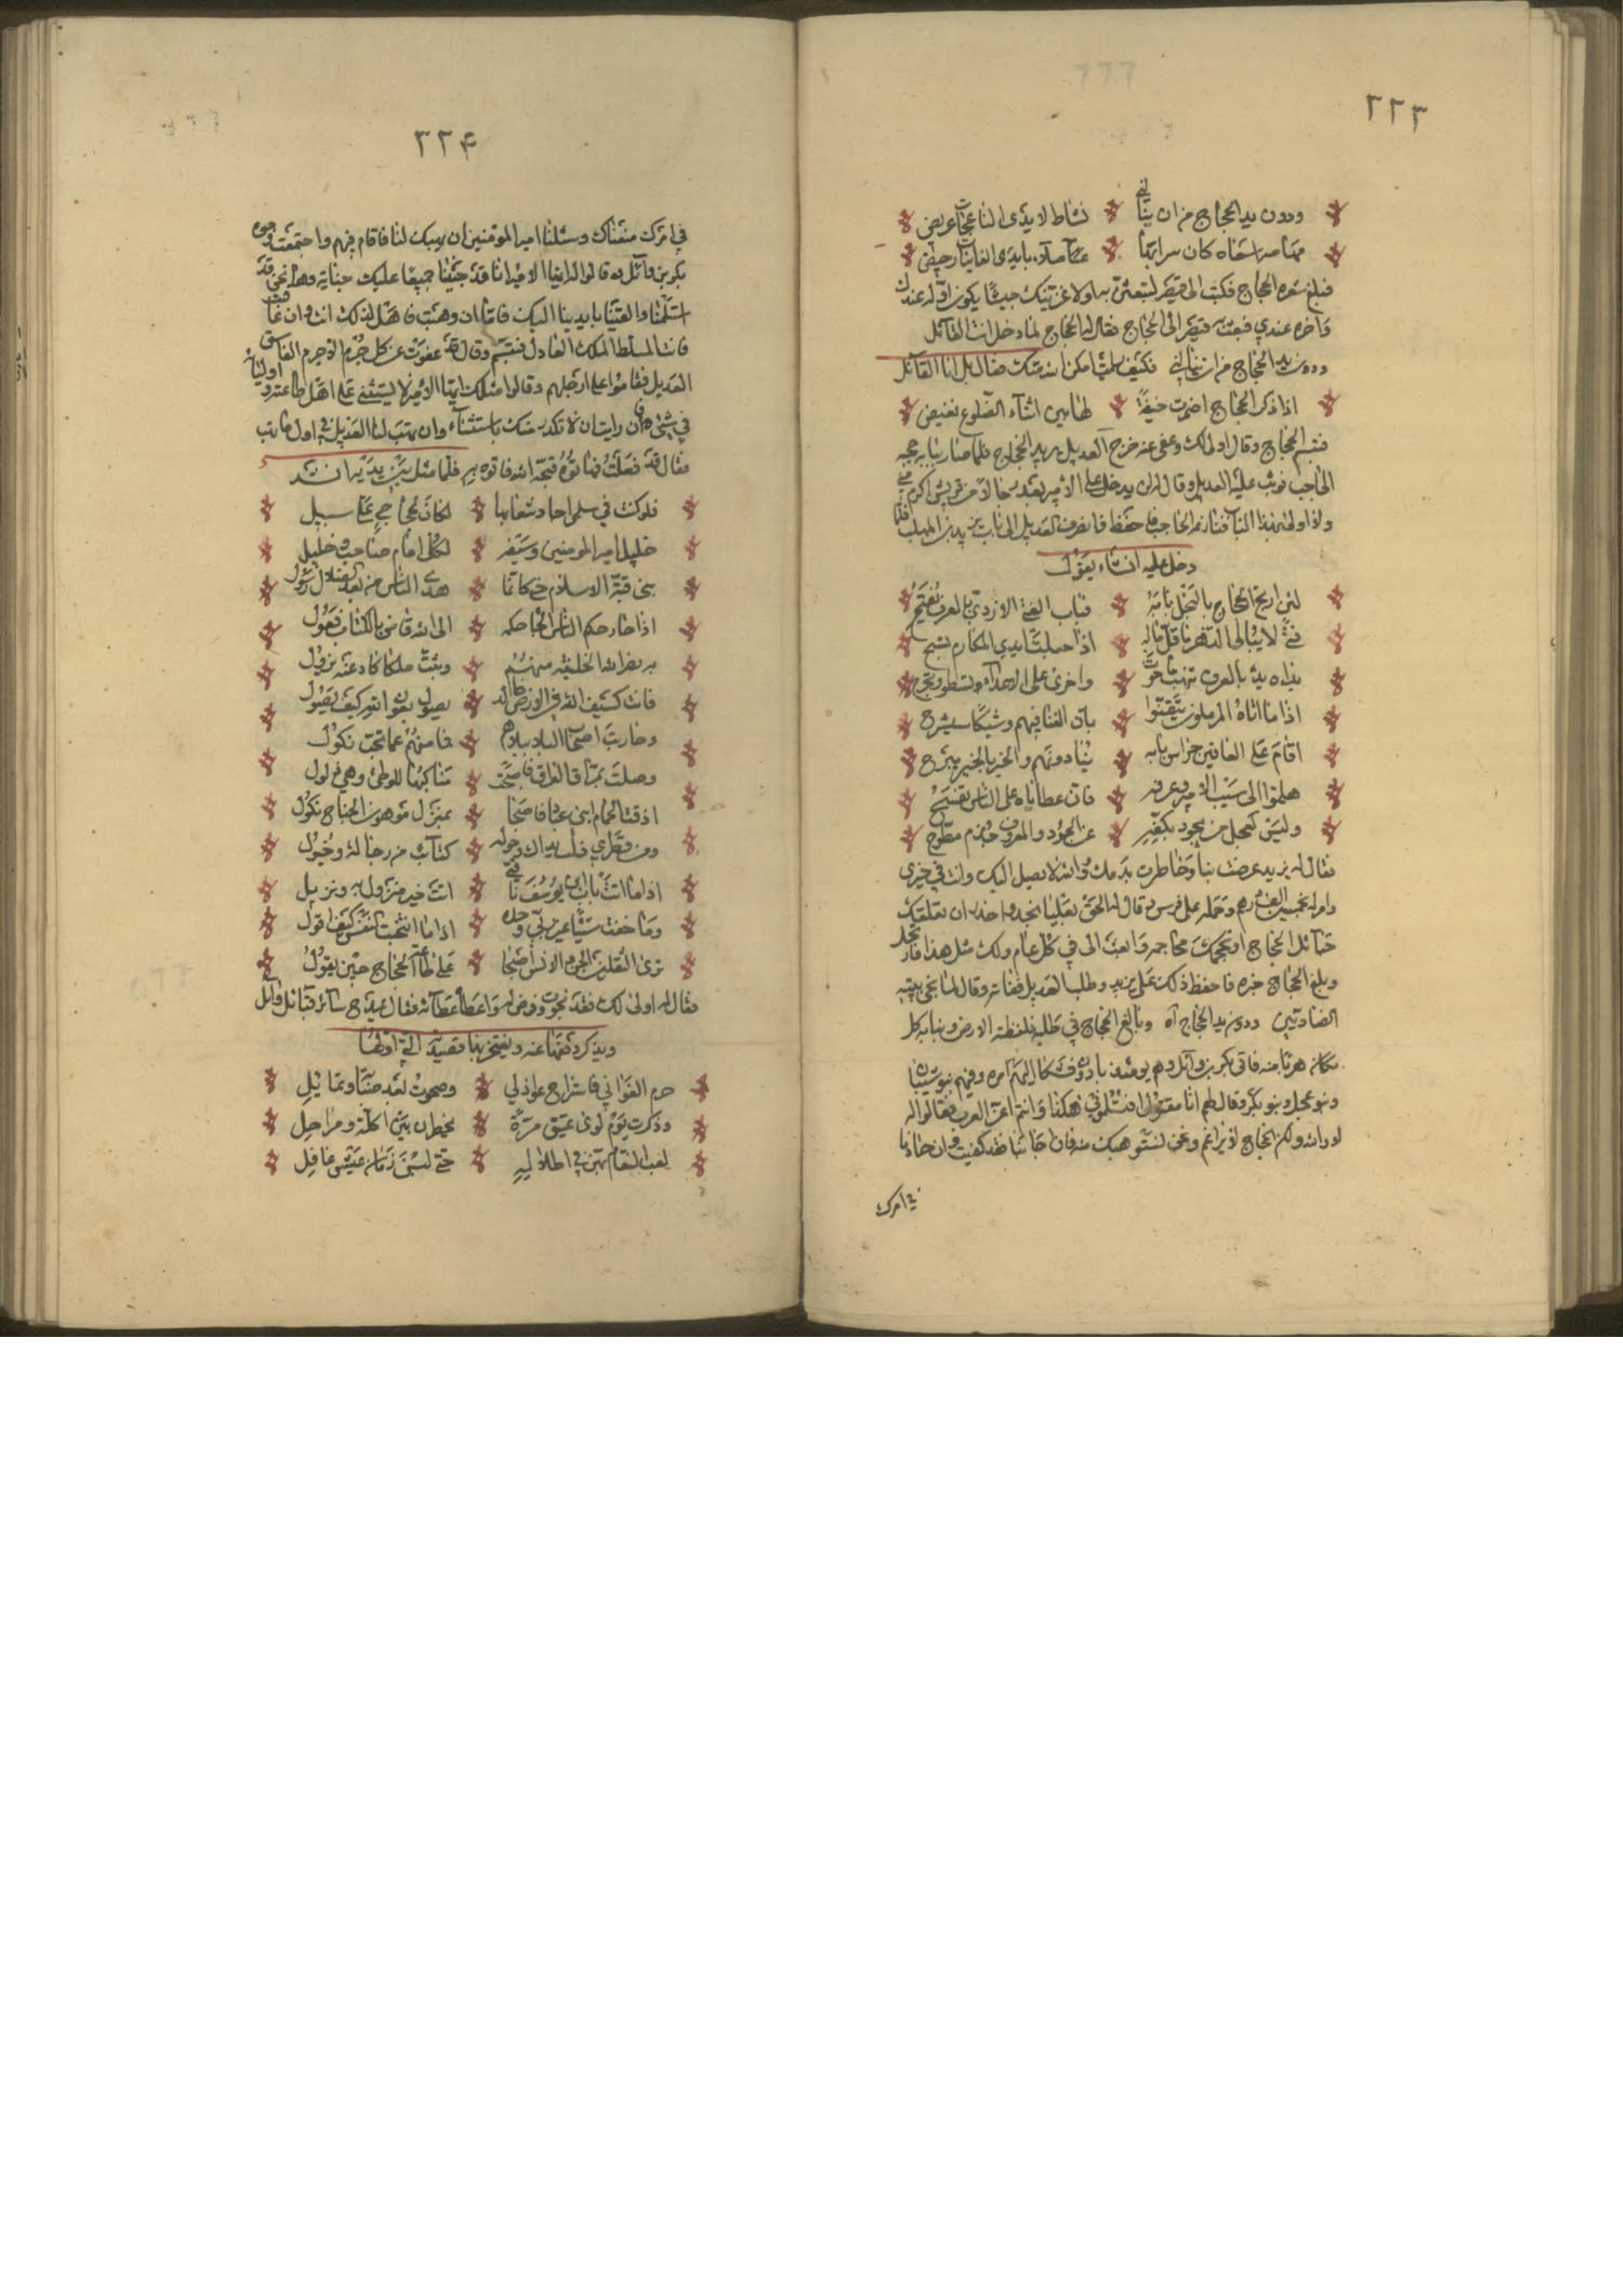 ٢٢٣
ودون يد الحجاج من ان ينالني بساط لايدي الناعجات عريض
فبلغ شعره الحجاج فكتب الى قيصر لتبعثن به اولاغزينك جيشا يكون اوله عندك
وآخره عندي فبعث به قيصر الى الحجاج فقال له الحجاج لما دخل انت القائل
ودون يد الحجاج من ان تنالني فكيف رايت امكن الله منك فقال بل انا القائل
اذا ذكر الحجاج اضمرت خيفة لها بين اثناء الضلوع نفيض
فتبسم الحجاج وقال اولى لك وعفى عنه خرج العديل يريد الحجاج فلما صار ببابه حجبه
الحاجب فوثب عليه العديل وقال انه لن يدخل على الامير بعد رجالات قريش اكرم مني
ولا اولى بهذا الباب فنازعه الحاجب فاحفظه فانصرف العديل الى باب يزيد بن المهلب فلما
دخل عليه انشاء يقول
لئن ارتج الحجاج بالبخل بابه فباب الفتى الازدي بالعرف يفتح
فتى لا يبالي الدهر ما قل ماله اذا جعلت ايدي المكارم تسنح
يداه يد بالعرف تنهب ما حوت واخرى على الاعداء تسطو وتجرح
اذا ما اتاه المرملون تيقنوا بان الغنا فيهم وشيكا سيسرح
اقام على العافين حراس بابه ينادونهم والحر بالحر يفرح
هلموا الى سيب الامير وعرفه فان عطاياه على الناس تنفح
وليس كعلج من ثمود بكفه عن الجود والمعروف حزم مطوح
فقال له يزيد عرضت بنا وخاطرت بدمك والله لا يصل اليك وانت في حيزي
وامر له بخمسين الف درهم وحمله على فرس وقال له الحق بعلياء نجد واحذر ان تعلقك
حبائل الحجاج او تحتجنك محاجنه وابعث الى في كل عام ولك مثل هذا فارتحل
وبلغ الحجاج خبره فاحفظه ذلك على يزيد وطلب العديل ففاته وقال لما نجى بيتيه
الضاديين ودون يد الحجاج آه وبالغ الحجاج في طلبه فلفظته الارض ونبا به كل
مكان هربا منه فاتى بكر بن وائل وهم يومئذ بادون فشكا اليهم امره وفيهم بنو شيبان
وبنو عجل وبنو يشكر وقال لهم انا مقتول افتسلموني هكذا وانتم اعز العرب فقالوا له
لا والله ولكن الحجاج لا يراغم ونحن نستوهبك منه فان اجابنا فقد كفيت وان حادنا
في امرك
٢٢٤
في امرك منعناك وسئلنا امير المومنين ان يهبك لنا فاقام فيهم واجتمعت وجوه
بكر بن وائل فقالوا له ايها الامير انا قد جنينا جميعا عليك جناية وها نحن قد
استسلمنا والقينا بايدينا اليك فاما ان وهبت فاهل لذلك انت وان عاقبت
فانت المسلط الملك العادل فتبسم وقال قد عفوت عن كل جرم الا جرم الفاسق
العديل فقاموا على ارجلهم وقالوا مثلك ايها الامير لا يستثني على اهل طاعته واوليائه
في شئ فان رايت ان لا تكدر منك باستثناء وان تهب لنا العديل في اول من تهب
فقال قد فعلت فهاتوه قبحه الله فاتوه به فلما مثل بين يديه انشد
فلو كنت في سلمى اجا وشعابها لكان لحجاج علي سبيل
خليل امير المومنين وسيفه لكل امام صاحب وخليل
بنى قبة الاسلام حتى كانما هدى الناس من بعد الضلال رسول
اذا جار حكم الناس الجا حكمه الى الله قاض بالكتاب عقول
به نصر الله الخليفة منهم وثبت ملكا كاد عنه يزول
فانت كسيف الله في الارض خالد يصول بعون الله كيف يصول
وجازيت اصحاب البلاء بلاءهم فما منهم عما تحب نكول
وصلت بمراق العراق فاصبحت مناكبها للوطئ وهي ذلول
اذقت الحمام ابني عباد فاصبحا بمنزل موهون الجناح نكول
ومن قطري نلت ذاك وحوله كتائب من رجالة وخيول
اذا ما اتت باب ابن يوسف ناقتي اتت خير منزول به ونزيل
وما خفت شيئا غير ربي وحده اذا ما انتحيت النفس كيف اقول
ترى الثقلين الجن والانس اصبحا على طاعة الحجاج حين يقول
فقال له اولى لك فقد نجوت وفرض له واعطاه عطائه فقال يمدح سائر قبائل وائل
ويذكر دفعها عنه ويفتخر بها قصيدته التي اولها
صرم الغواني فاستراح عواذلي وصحوت بعد صبابة وتمايل
وذكرت يوم لوى عتيق مرة يخطرن بين اكلة ومراحل
لعب النعام بهن في اطلاله حتى لبسن زمان عيش غافل